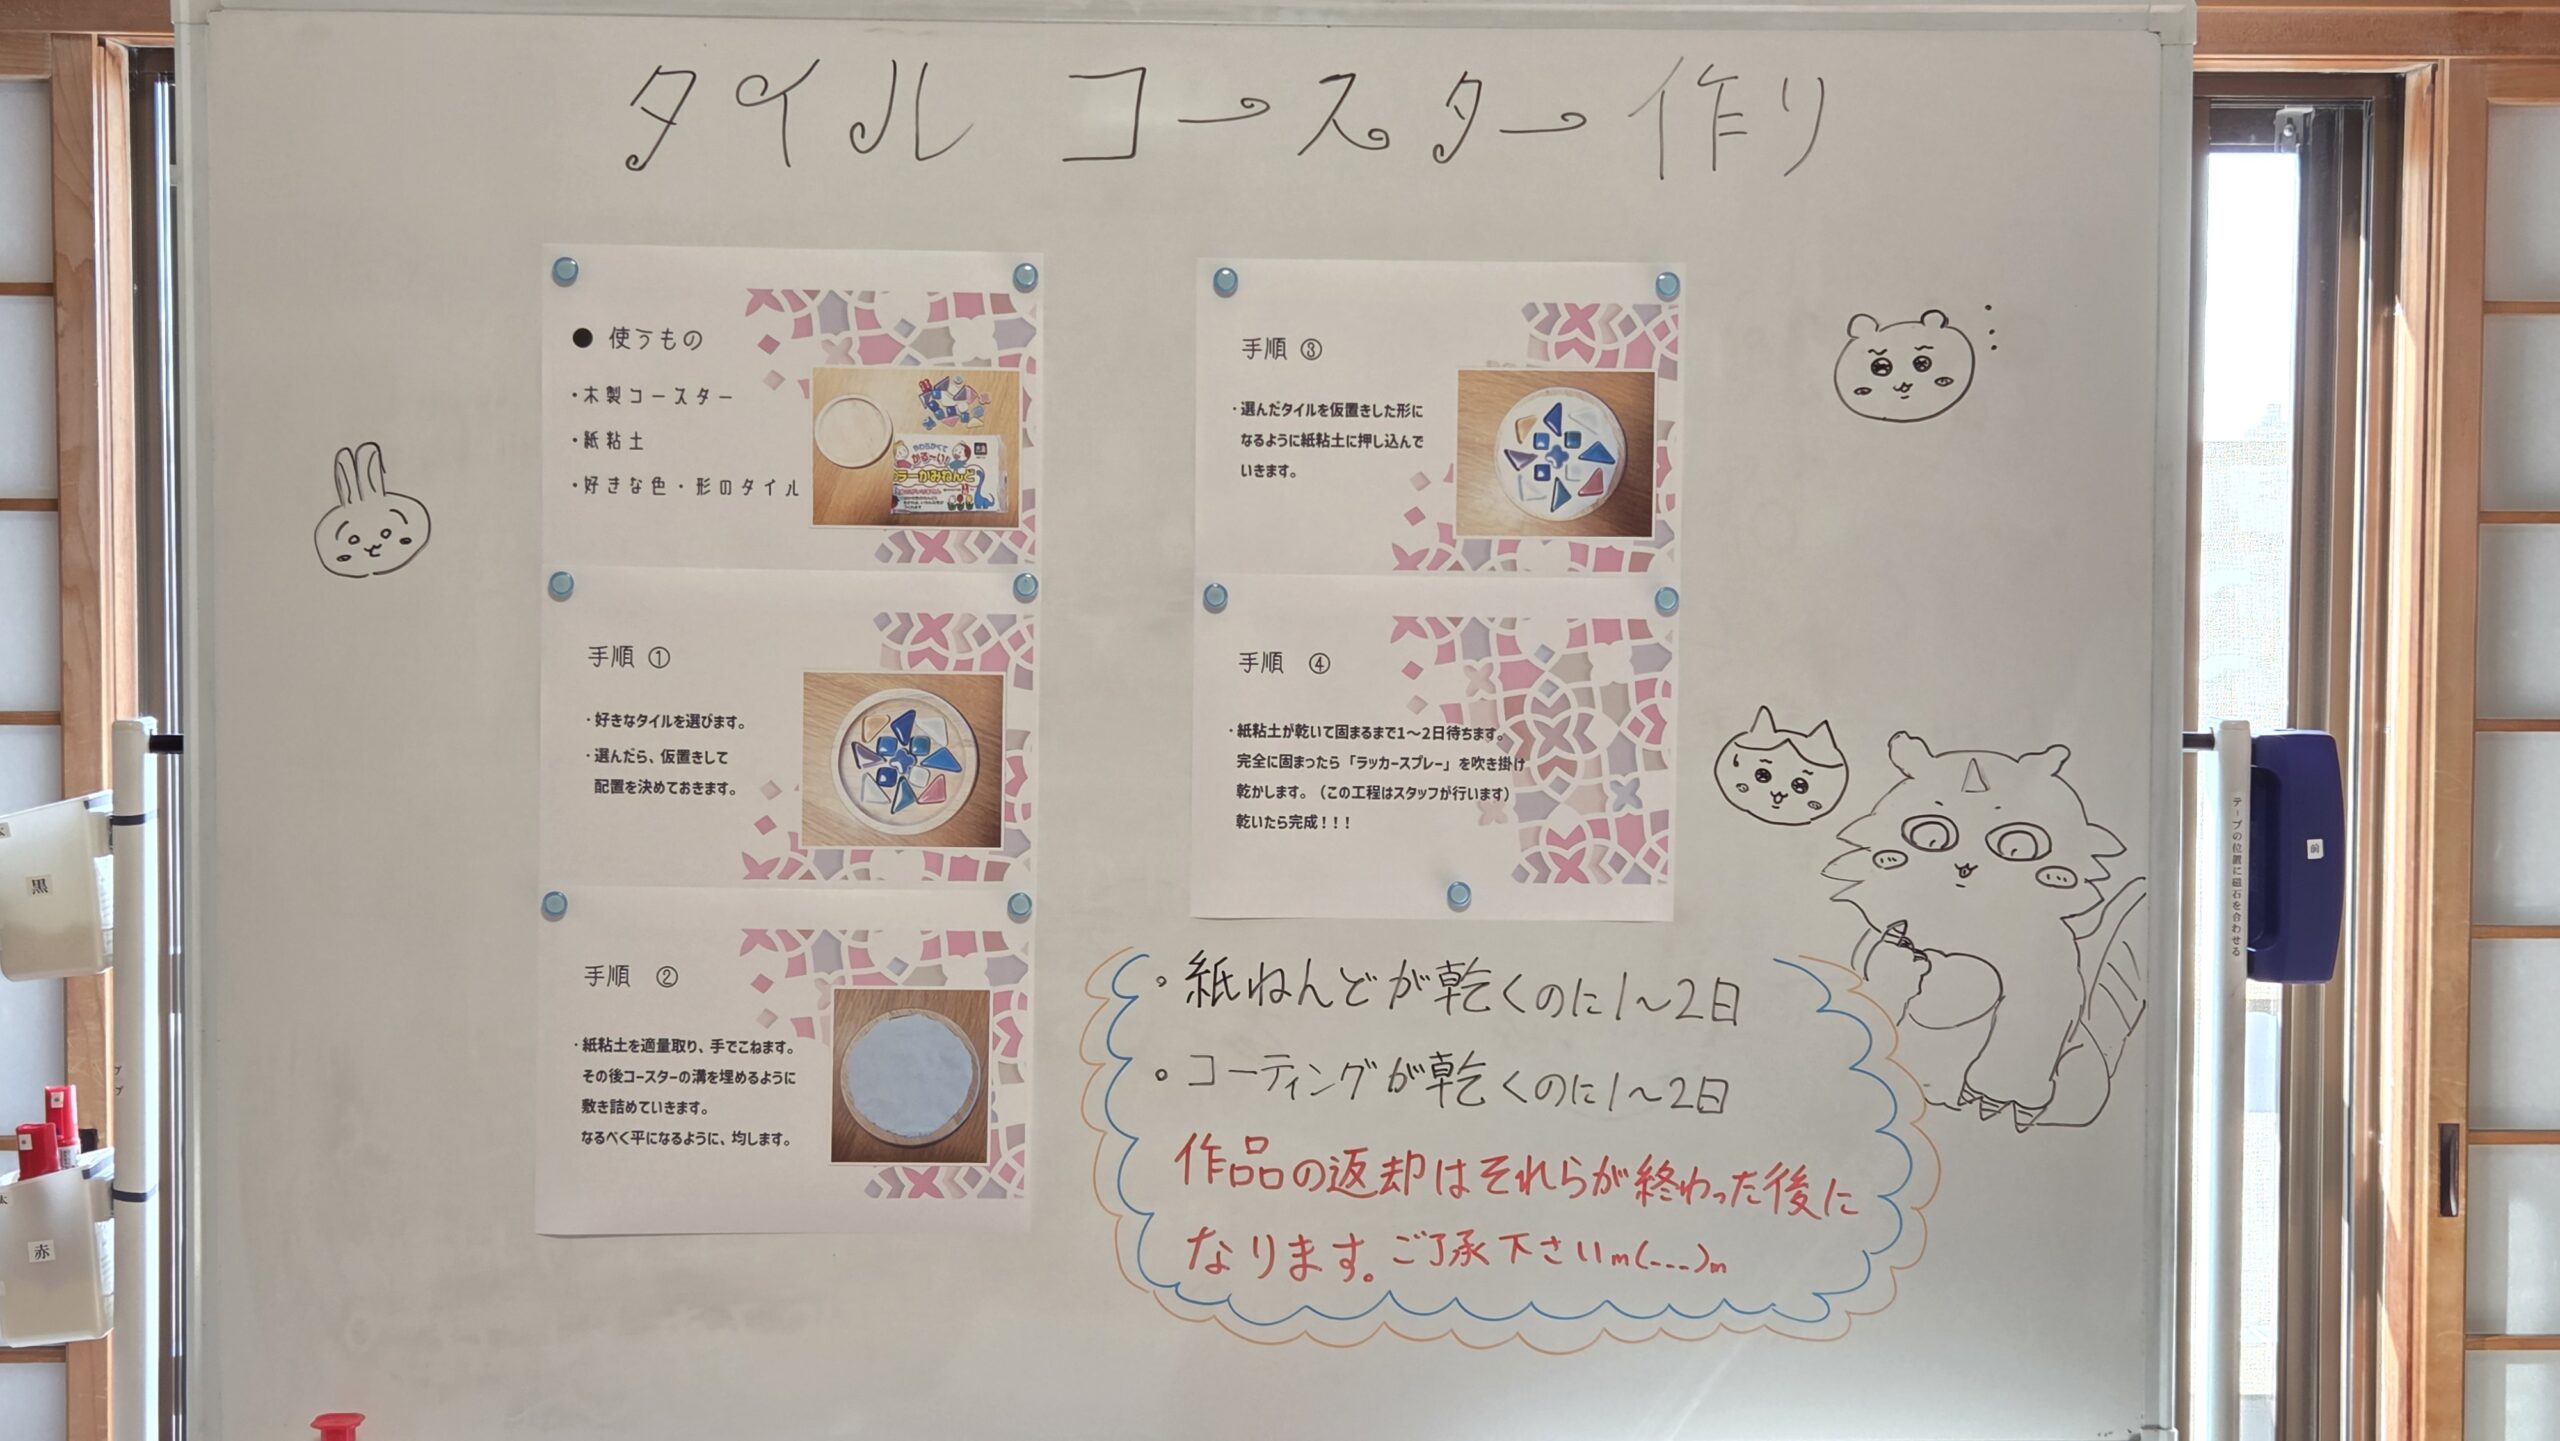 タイルコースター作り
● 使うもの
・木製コースター
・紙粘土
・好きな色・形のタイル
やわらかくて
かる〜い!
ラーかみねんど
手順 ①
・好きなタイルを選びます。
・選んだら、仮置きして
配置を決めておきます。
手順 ②
・紙粘土を適量取り、手でこねます。
その後コースターの溝を埋めるように
敷き詰めていきます。
なるべく平になるように、均します。
手順 ③
・選んだタイルを仮置きした形に
なるように紙粘土に押し込んで
いきます。
手順 ④
・紙粘土が乾いて固まるまで1〜2日待ちます。
完全に固まったら「ラッカースプレー」を吹き掛け
乾かします。（この工程はスタッフが行います）
乾いたら完成！！！
。紙ねんどが乾くのに1〜2日
。コーティングが乾くのに1〜2日
作品の返却はそれらが終わった後に
なります。ご了承下さいm(---)m
黒
太
赤
テープの位置に磁石を合わせる
前